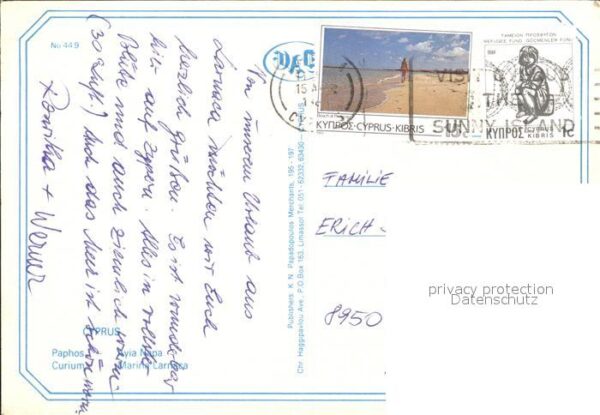 No 449
Von unserem Urlaub aus
Larnaca möchten wir Euch
herzlich grüßen. Es ist wunderbar
hier auf Zypern. Alles in voller
Blüte und auch ziemlich warm
(30 Luft.) Und das Meer ist schön warm
Roswitha + Werner
CYPRUS
Paphos Ayia Napa
Curium Marina Larnaca
Publishers K. N. Papadopoulos Merchants, 195 - 197
Chr. Haggipavlou Ave., P.O.Box 183, Limassol Tel. 051-62332, 63430 - CYPRUS
15
ΚΥΠΡΟΣ·CYPRUS·KIBRIS
ΤΑΜΕΙΟΝ ΠΡΟΣΦΥΓΩΝ
REFUGEE FUND GÖÇMENLER FONU
1984
ΚΥΠΡΟΣ CYPRUS KIBRIS 1c
VISIT CYPRUS
THE
SUNNY ISLAND
FAMILIE
ERICH
8950
privacy protection
Datenschutz